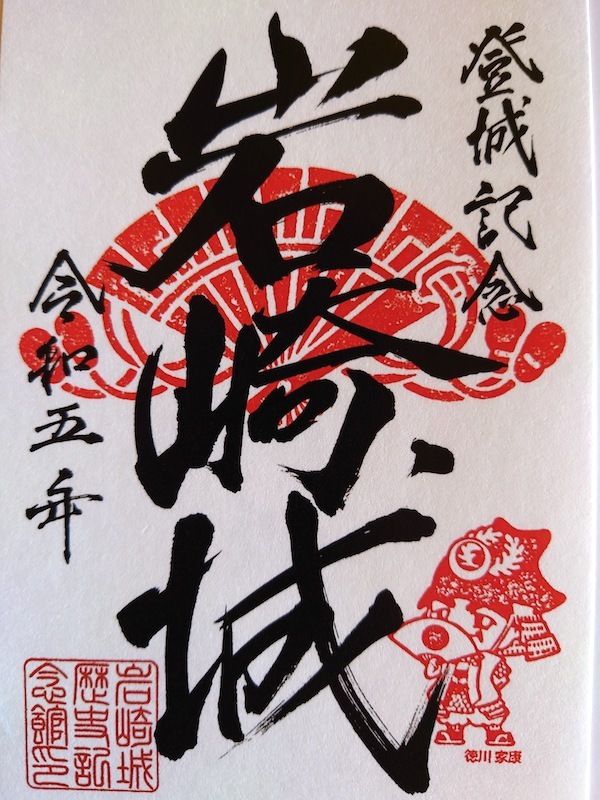 登城記念
岩崎城
令和五年
岩崎城
歴史記
念館印
徳川 家康